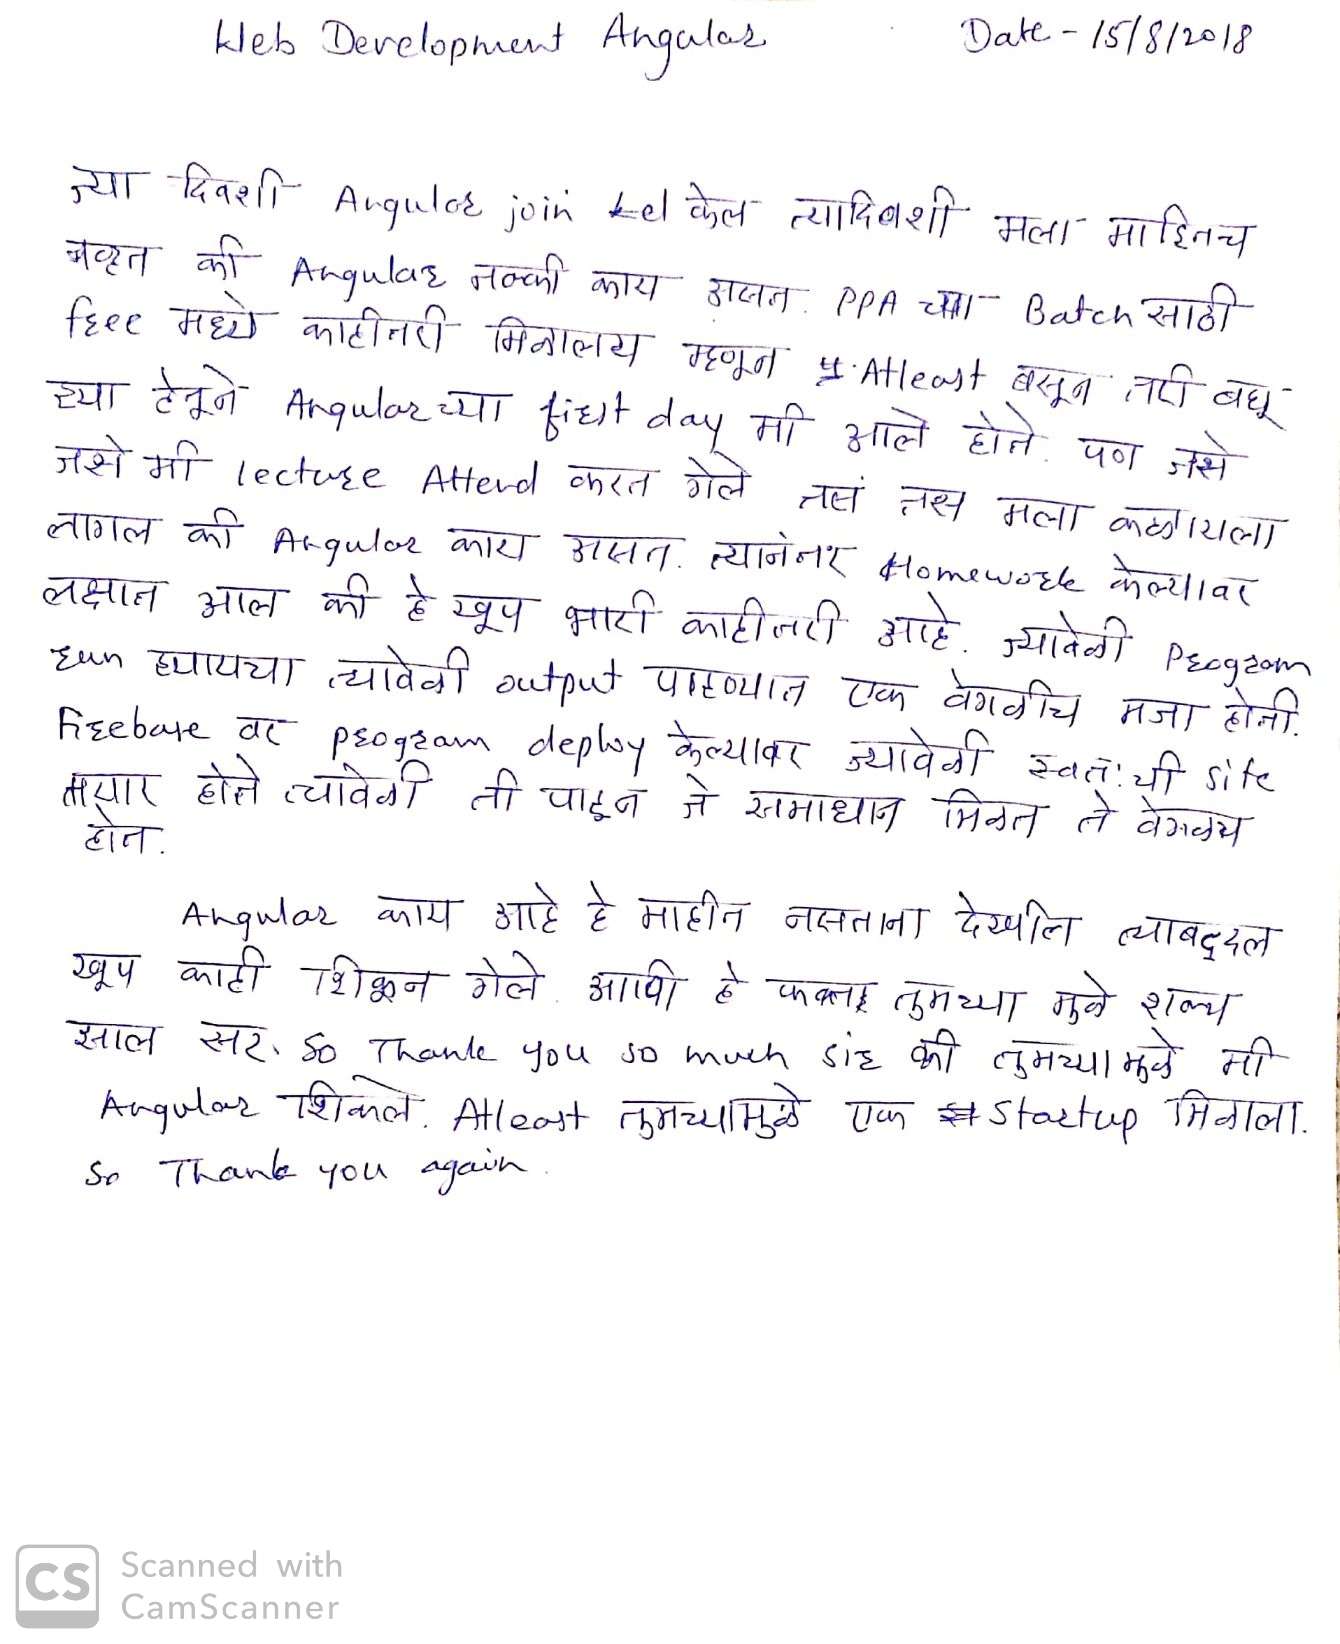 Web Development Angular Date - 15/8/2018
ज्या दिवशी Angular join केल त्यादिवशी मला माहितच
नव्हत की Angular नक्की काय असत. PPA च्या Batch साठी
free मध्ये काहीतरी मिळालय म्हणून Atleast बसून तरी बघू
ह्या हेतूने Angular च्या first day मी आले होते. पण जसे
जसे मी lecture Attend करत गेले तसं तस मला कळायला
लागल की Angular काय असत. त्यानंतर Homework केल्यावर
लक्षात आल की हे खूप भारी काहीतरी आहे. ज्यावेळी Program
run व्हायचा त्यावेळी output पाहण्यात एक वेगळीच मजा होती.
Firebase वर program deploy केल्यावर ज्यावेळी स्वतःची site
तयार होते त्यावेळी ती पाहून जे समाधान मिळत ते वेगळच
होत.
Angular काय आहे हे माहीत नसताना देखील त्याबद्दल
खूप काही शिकून गेले. आणि हे फक्त तुमच्या मुळे शक्य
झाल सर. So Thank you so much sir की तुमच्यामुळे मी
Angular शिकले. Atleast तुमच्यामुळे एक Startup मिळाला.
So Thank you again.
CS Scanned with
CamScanner